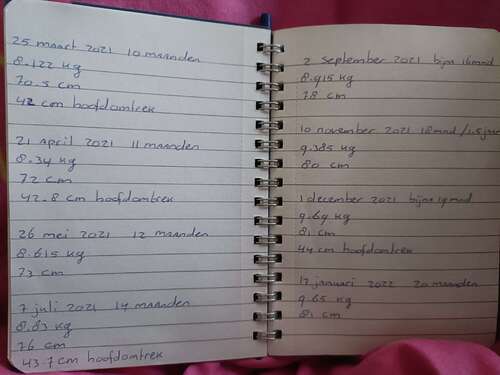 25 maart 2021 10 maanden
8.122 kg
70.5 cm
42 cm hoofdomtrek
21 april 2021 11 maanden
8.34 kg
72 cm
42.8 cm hoofdomtrek
26 mei 2021 12 maanden
8.615 kg
73 cm
7 juli 2021 14 maanden
8.83 kg
76 cm
43.7 cm hoofdomtrek
2 september 2021 bijna 16 mnd
8.915 kg
78 cm
10 november 2021 18 mnd / 1,5 jaar
9.385 kg
80 cm
1 december 2021 bijna 19 mnd
9.69 kg
81 cm
44 cm hoofdomtrek
12 januari 2022 20 maanden
9.65 kg
81 cm